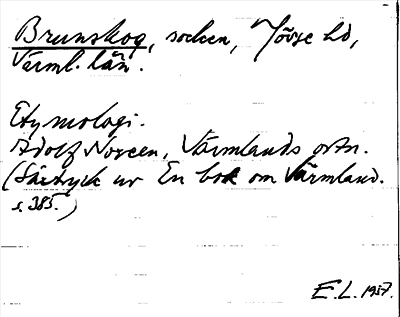 Brunskog, socken, Jösse hd,
Värml. län.
Etymologi.
Adolf Noreen, Värmlands ortn.
(Särtryck ur En bok om Värmland.
s. 385.)
E.L. 1937.